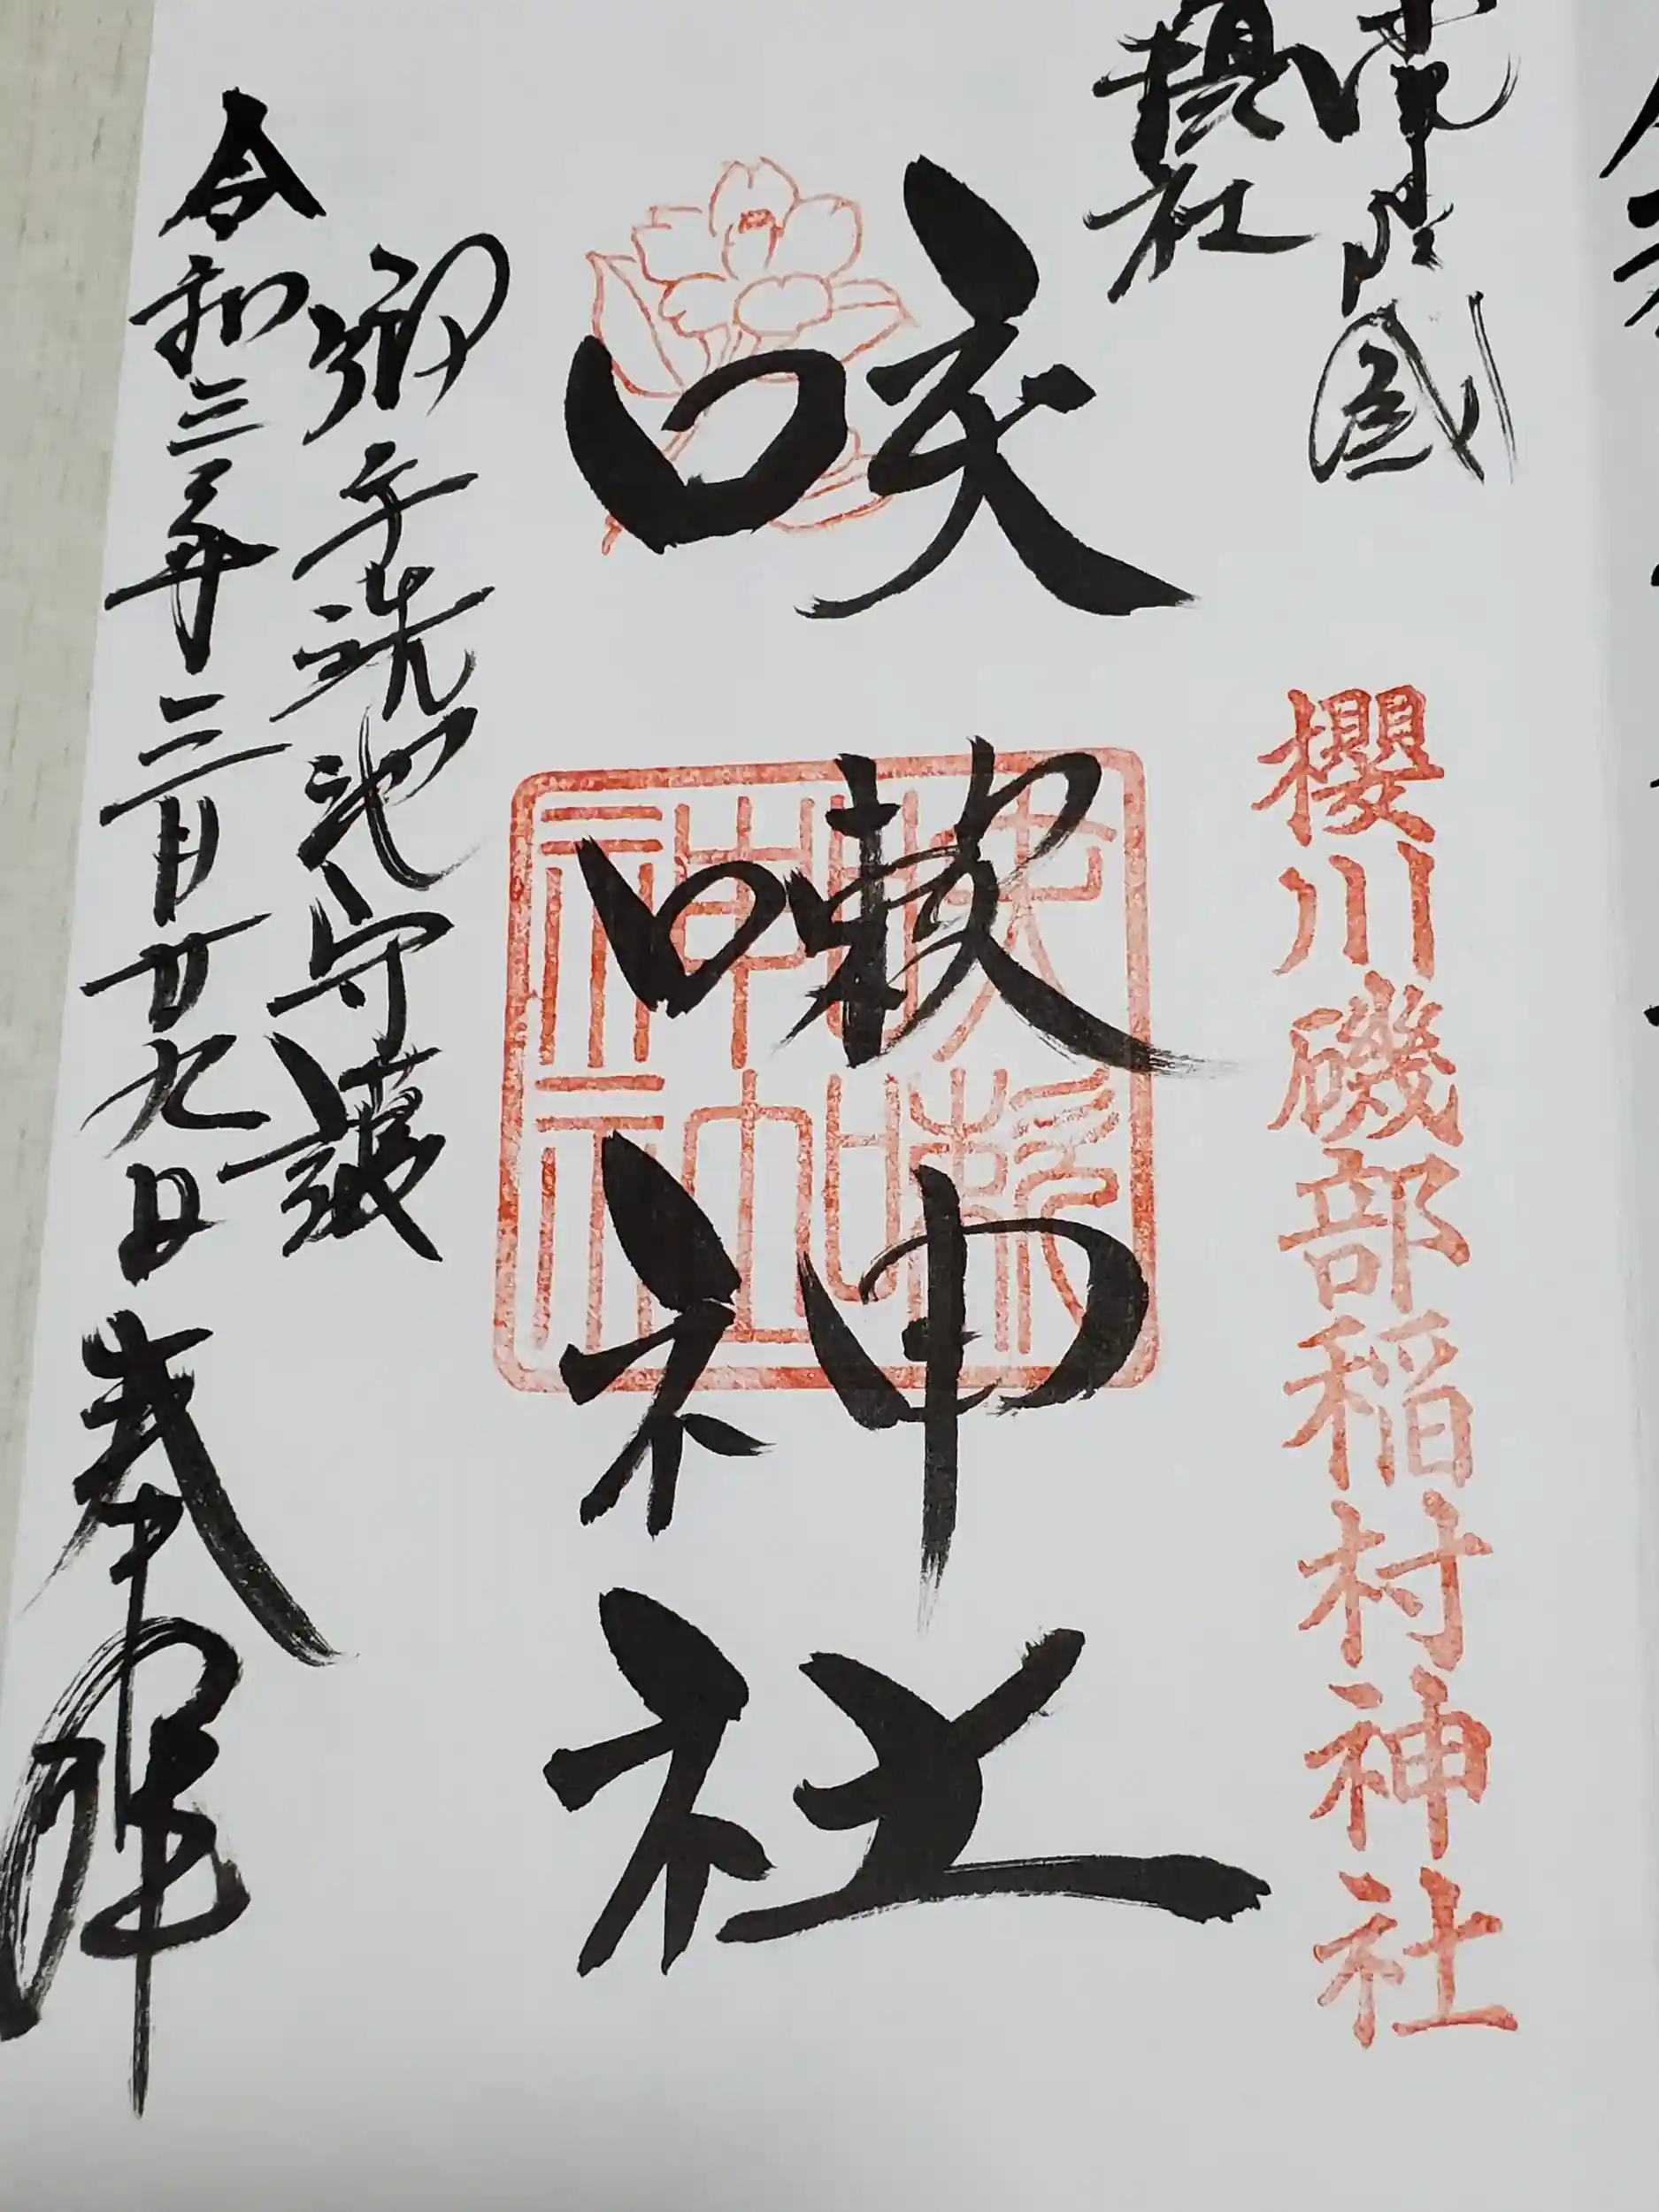 常陸國
摂社
櫻川磯部稲村神社
咳嗽神社
咳嗽神社
御手洗池守護
令和三年三月廿九日
奉拝